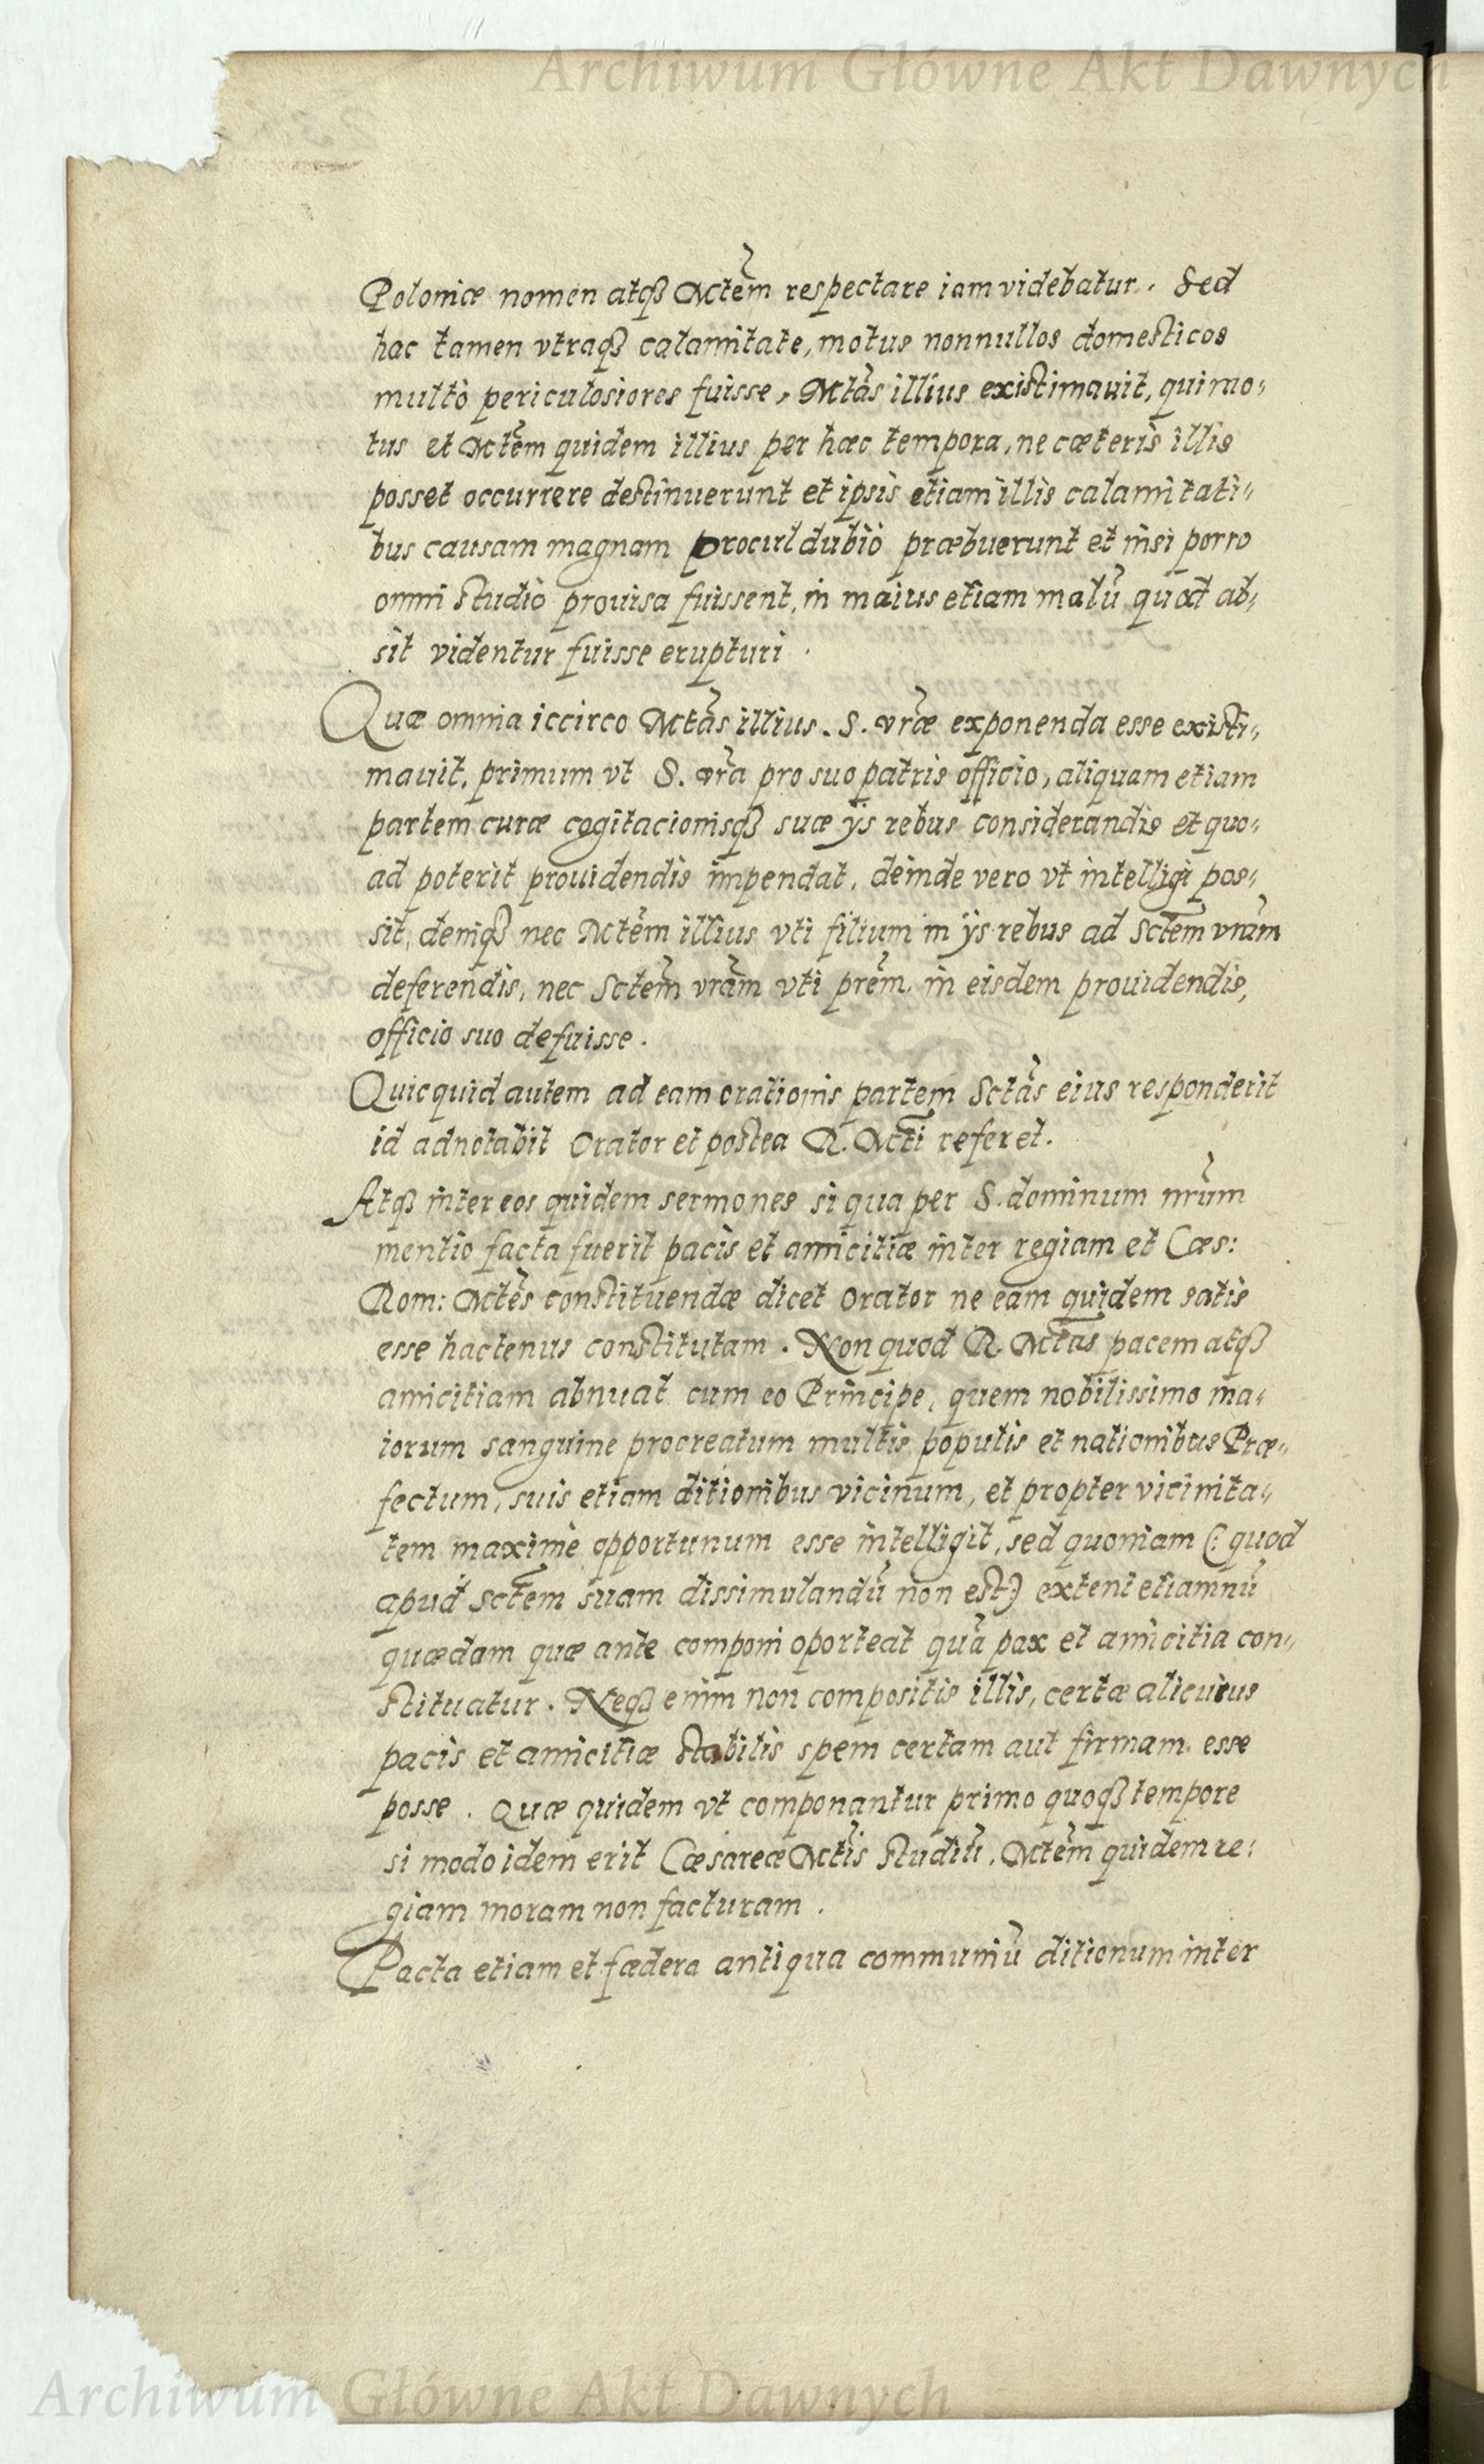 Archiwum Główne Akt Dawnych
Poloniæ nomen atqȝ Mctẽm respectare iam videbatur. Sed
hac tamen vtraqȝ calamitate, motus nonnullos domesticos
multò periculosiores fuisse, Mtãs illius existimauit, qui mo„
tus et Mctẽm quidem illius per hæc tempora, ne cæteris illis
posset occurrere destinuerunt et ipsis etiam illis calamitati„
bus causam magnam procul dubio præbuerunt et nisi porro
omni studio prouisa fuissent, in maius etiam malũ quod ab„
sit videntur fuisse erupturi.
Quæ omnia iccirco Mctãs illius. S. vrãe exponenda esse existi„
mauit, primum vt S. vrã pro suo patris officio, aliquam etiam
partem curæ cogitacionisqȝ suæ ÿs rebus considerandis et quo„
ad poterit prouidendis impendat, deinde vero vt intelligi pos„
sit, deniqȝ nec Mctẽm illius vti filium in ÿs rebus ad Sctẽm vrãm
deferendis, nec Sctẽm vrãm vti prẽm, in eisdem prouidendis,
officio suo defuisse.
Quicquid autem ad eam orationis partem Sctãs eius responderit
id adnotabit Orator et postea R. Mctĩ referet.
Atqȝ inter eos quidem sermones si qua per S. dominum nrũm
mentio facta fuerit pacis et amicitiæ inter regiam et Cæs:
Rom: Mctẽs constituendæ dicet Orator ne eam quidem satis
esse hactenus constitutam. Non quod R. Mctãs pacem atqȝ
amicitiam abnuat cum eo Principe, quem nobilissimo ma„
iorum sanguine procreatum multis populis et nationibus Præ„
fectum, suis etiam ditionibus vicinum, et propter vicinita„
tem maxime opportunum esse intelligit, sed quoniam (: quod
apud Sctẽm suam dissimulandũ non est :) extent etiamnũ
quædam quæ ante componi oporteat quã pax et amicitia con„
stituatur. Neqȝ enim non compositis illis, certæ alicuius
pacis et amicitiæ stabilis spem certam aut firmam esse
posse. Quæ quidem vt componantur primo quoqȝ tempore
si modo idem erit Cæsareæ Mctĩs studiũ, Mctẽm quidem re„
giam moram non facturam.
Pacta etiam et fædera antiqua communiũ ditionum inter
Archiwum Główne Akt Dawnych